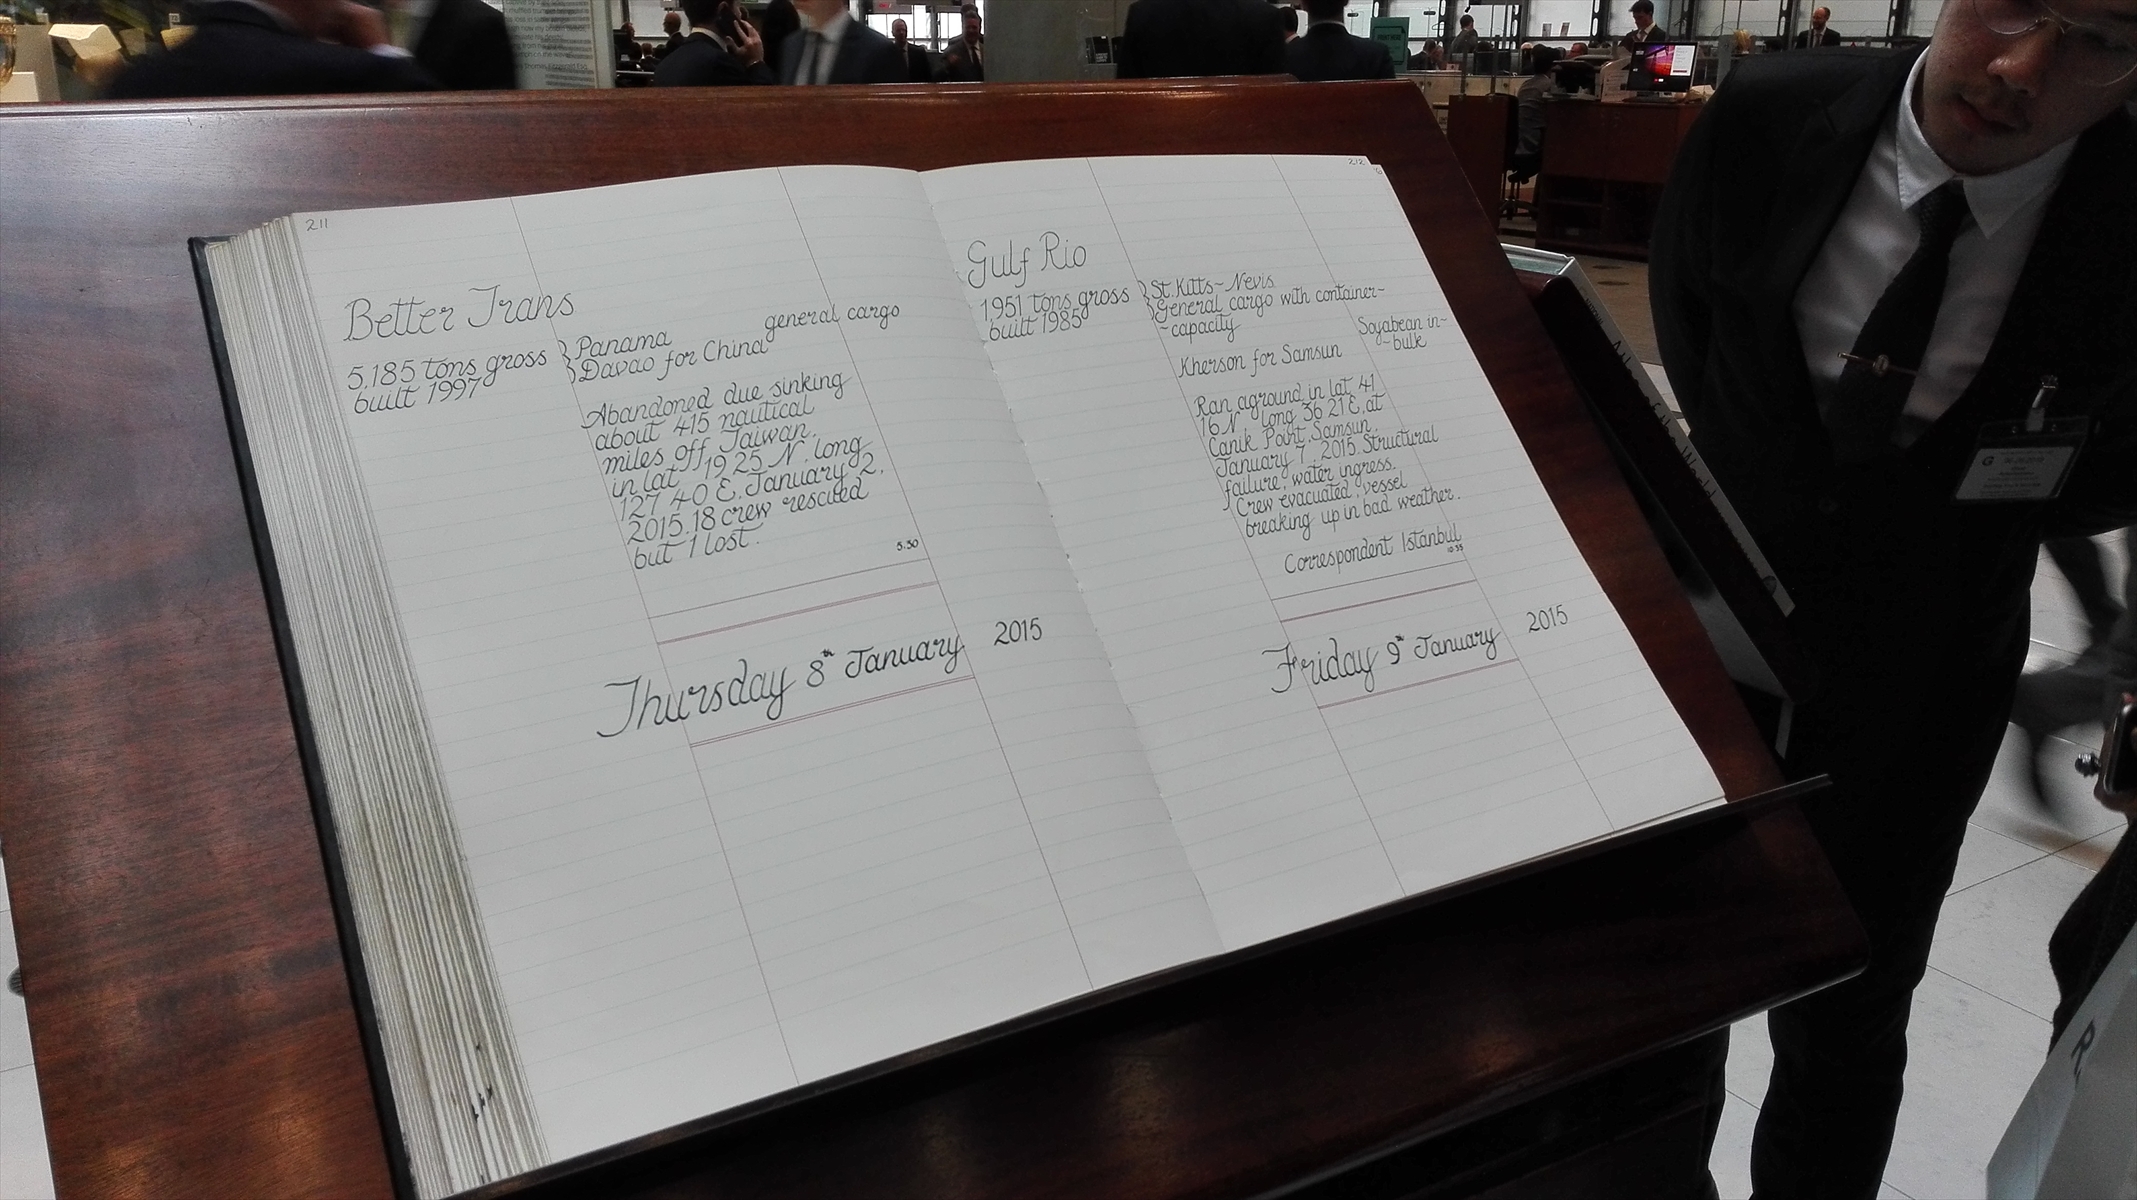 211
Better Trans
5,185 tons gross
built 1997
Panama
general cargo
Davao for China
Abandoned due sinking
about 415 nautical
miles off Taiwan,
in lat 19 25 N, long
127 40 E, January 2,
2015. 18 crew rescued,
but 1 lost.
5.30
Thursday 8th January 2015
212
Gulf Rio
1951 tons gross
built 1985
St. Kitts~Nevis
General cargo with container~
~capacity
Kherson for Samsun
Soyabean in~
~bulk
Ran aground in lat 41
16 N, long 36 21 E, at
Canik Point, Samsun,
January 7, 2015. Structural
failure, water ingress.
Crew evacuated, vessel
breaking up in bad weather.
Correspondent Istanbul
Friday 9th January 2015
of the World
R